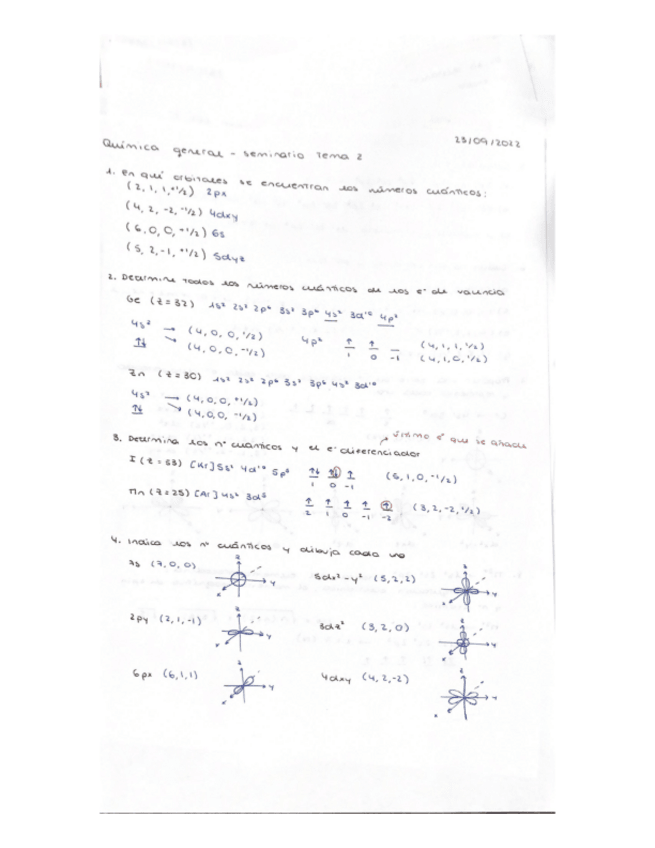 23/09/2022
Química general - seminario Tema 2
1. En qué orbitales se encuentran los números cuánticos:
(2, 1, 1, +1/2) 2px
(4, 2, -2, -1/2) 4dxy
(6, 0, 0, +1/2) 6s
(5, 2, -1, +1/2) 5dyz
2. Determina todos los números cuánticos de los e⁻ de valencia
Ge (Z=32) 1s² 2s² 2p⁶ 3s² 3p⁶ 4s² 3d¹⁰ 4p²
4s² → (4, 0, 0, 1/2)
↑↓ ↘ (4, 0, 0, -1/2)
4p² ↑ ↑ _ (4, 1, 1, 1/2)
1 0 -1 (4, 1, 0, 1/2)
Zn (Z=30) 1s² 2s² 2p⁶ 3s² 3p⁶ 4s² 3d¹⁰
4s² → (4, 0, 0, +1/2)
↑↓ ↘ (4, 0, 0, -1/2)
último e⁻ que se añade
3. Determina los nº cuánticos y el e⁻ diferenciador
I (Z=53) [Kr] 5s² 4d¹⁰ 5p⁵ ↑↓ ↑↓ ↑ (5, 1, 0, -1/2)
1 0 -1
Mn (Z=25) [Ar] 4s² 3d⁵ ↑ ↑ ↑ ↑ ↑ (3, 2, -2, 1/2)
2 1 0 -1 -2
4. Indica los nº cuánticos y dibuja cada uno
7s (7, 0, 0)
z
y
5dx²-y² (5, 2, 2)
z
y
x
2py (2, 1, -1)
z
y
x
3dz² (3, 2, 0)
z
y
x
6px (6, 1, 1)
z
y
x
4dxy (4, 2, -2)
z
y
x